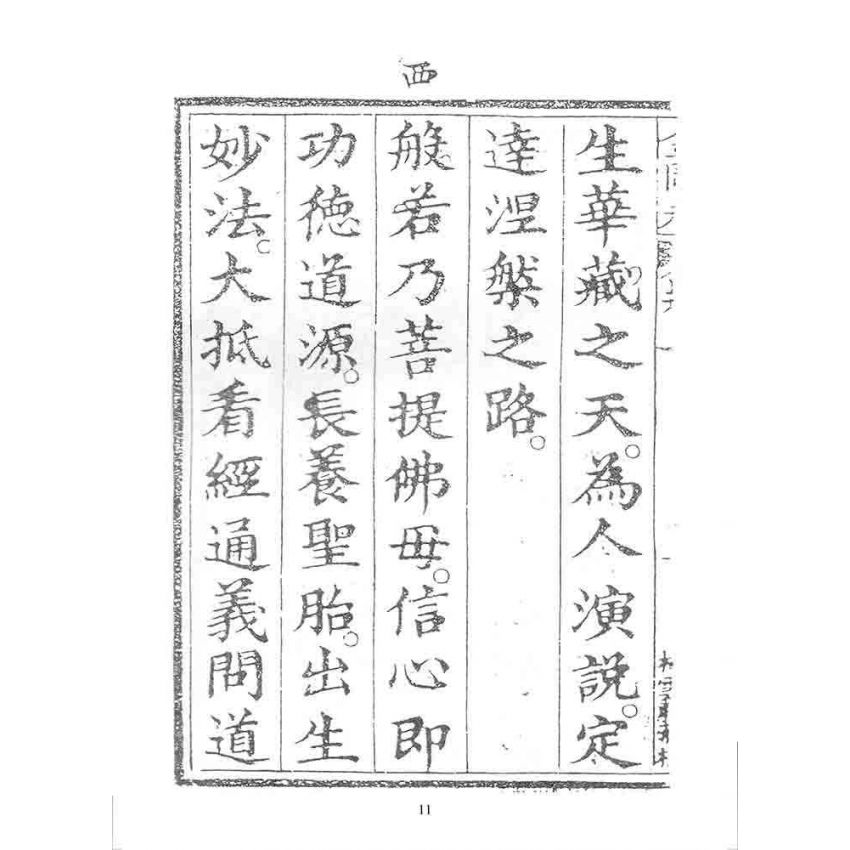 西
生華藏之天。為人演説。定
達涅槃之路。
般若乃菩提佛毋。信心即
功德道源。長養聖胎。出生
妙法。大抵看經通義問道
11